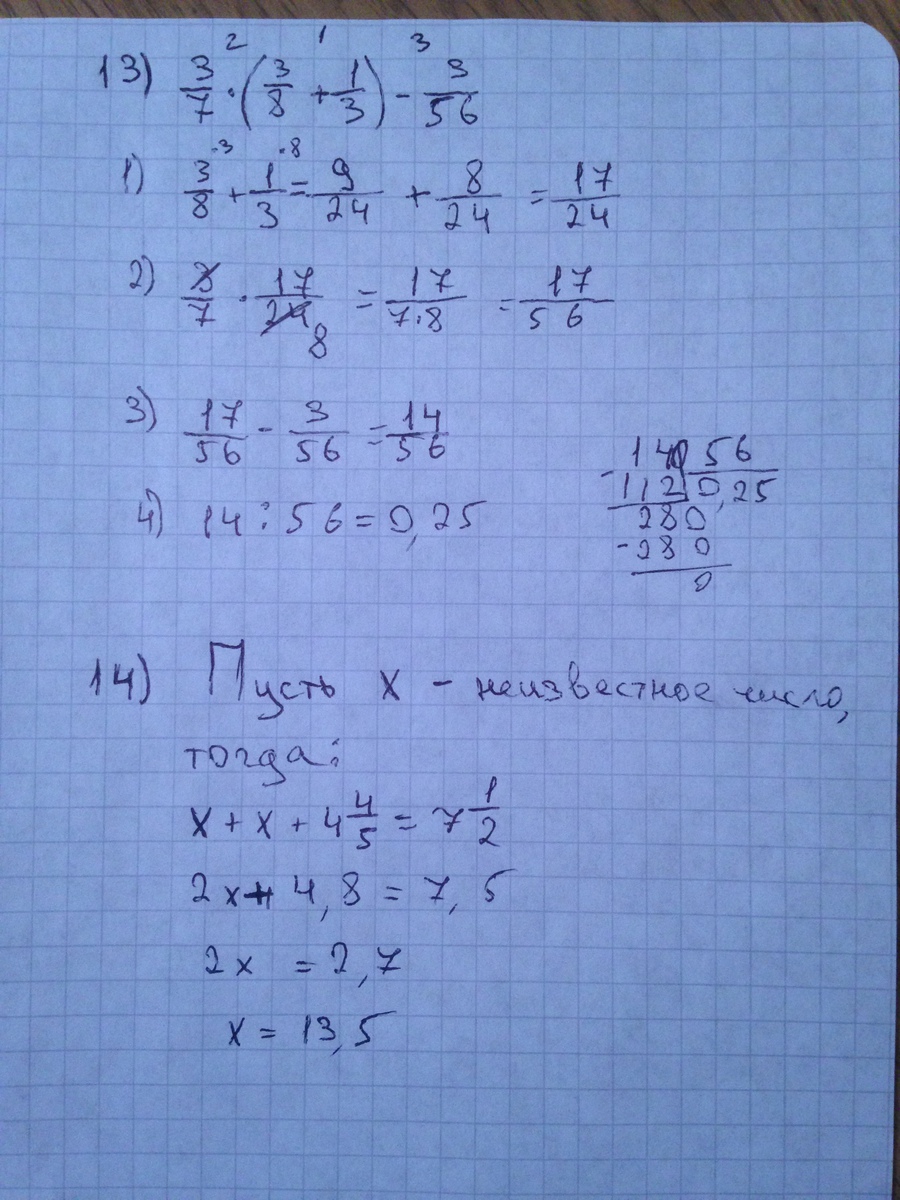 2 1 3
13) 3/7 · (3/8 + 1/3) - 3/56
·3 ·8
1) 3/8 + 1/3 = 9/24 + 8/24 = 17/24
2) 3/7 · 17/24 = 17/7·8 = 17/56
8
3) 17/56 - 3/56 = 14/56
4) 14 : 56 = 0,25
- 140 56
112 0,25
280
- 280
0
14) Пусть x - неизвестное число,
тогда:
x + x + 4 4/5 = 7 1/2
2x + 4,8 = 7,5
2x = 2,7
x = 13,5